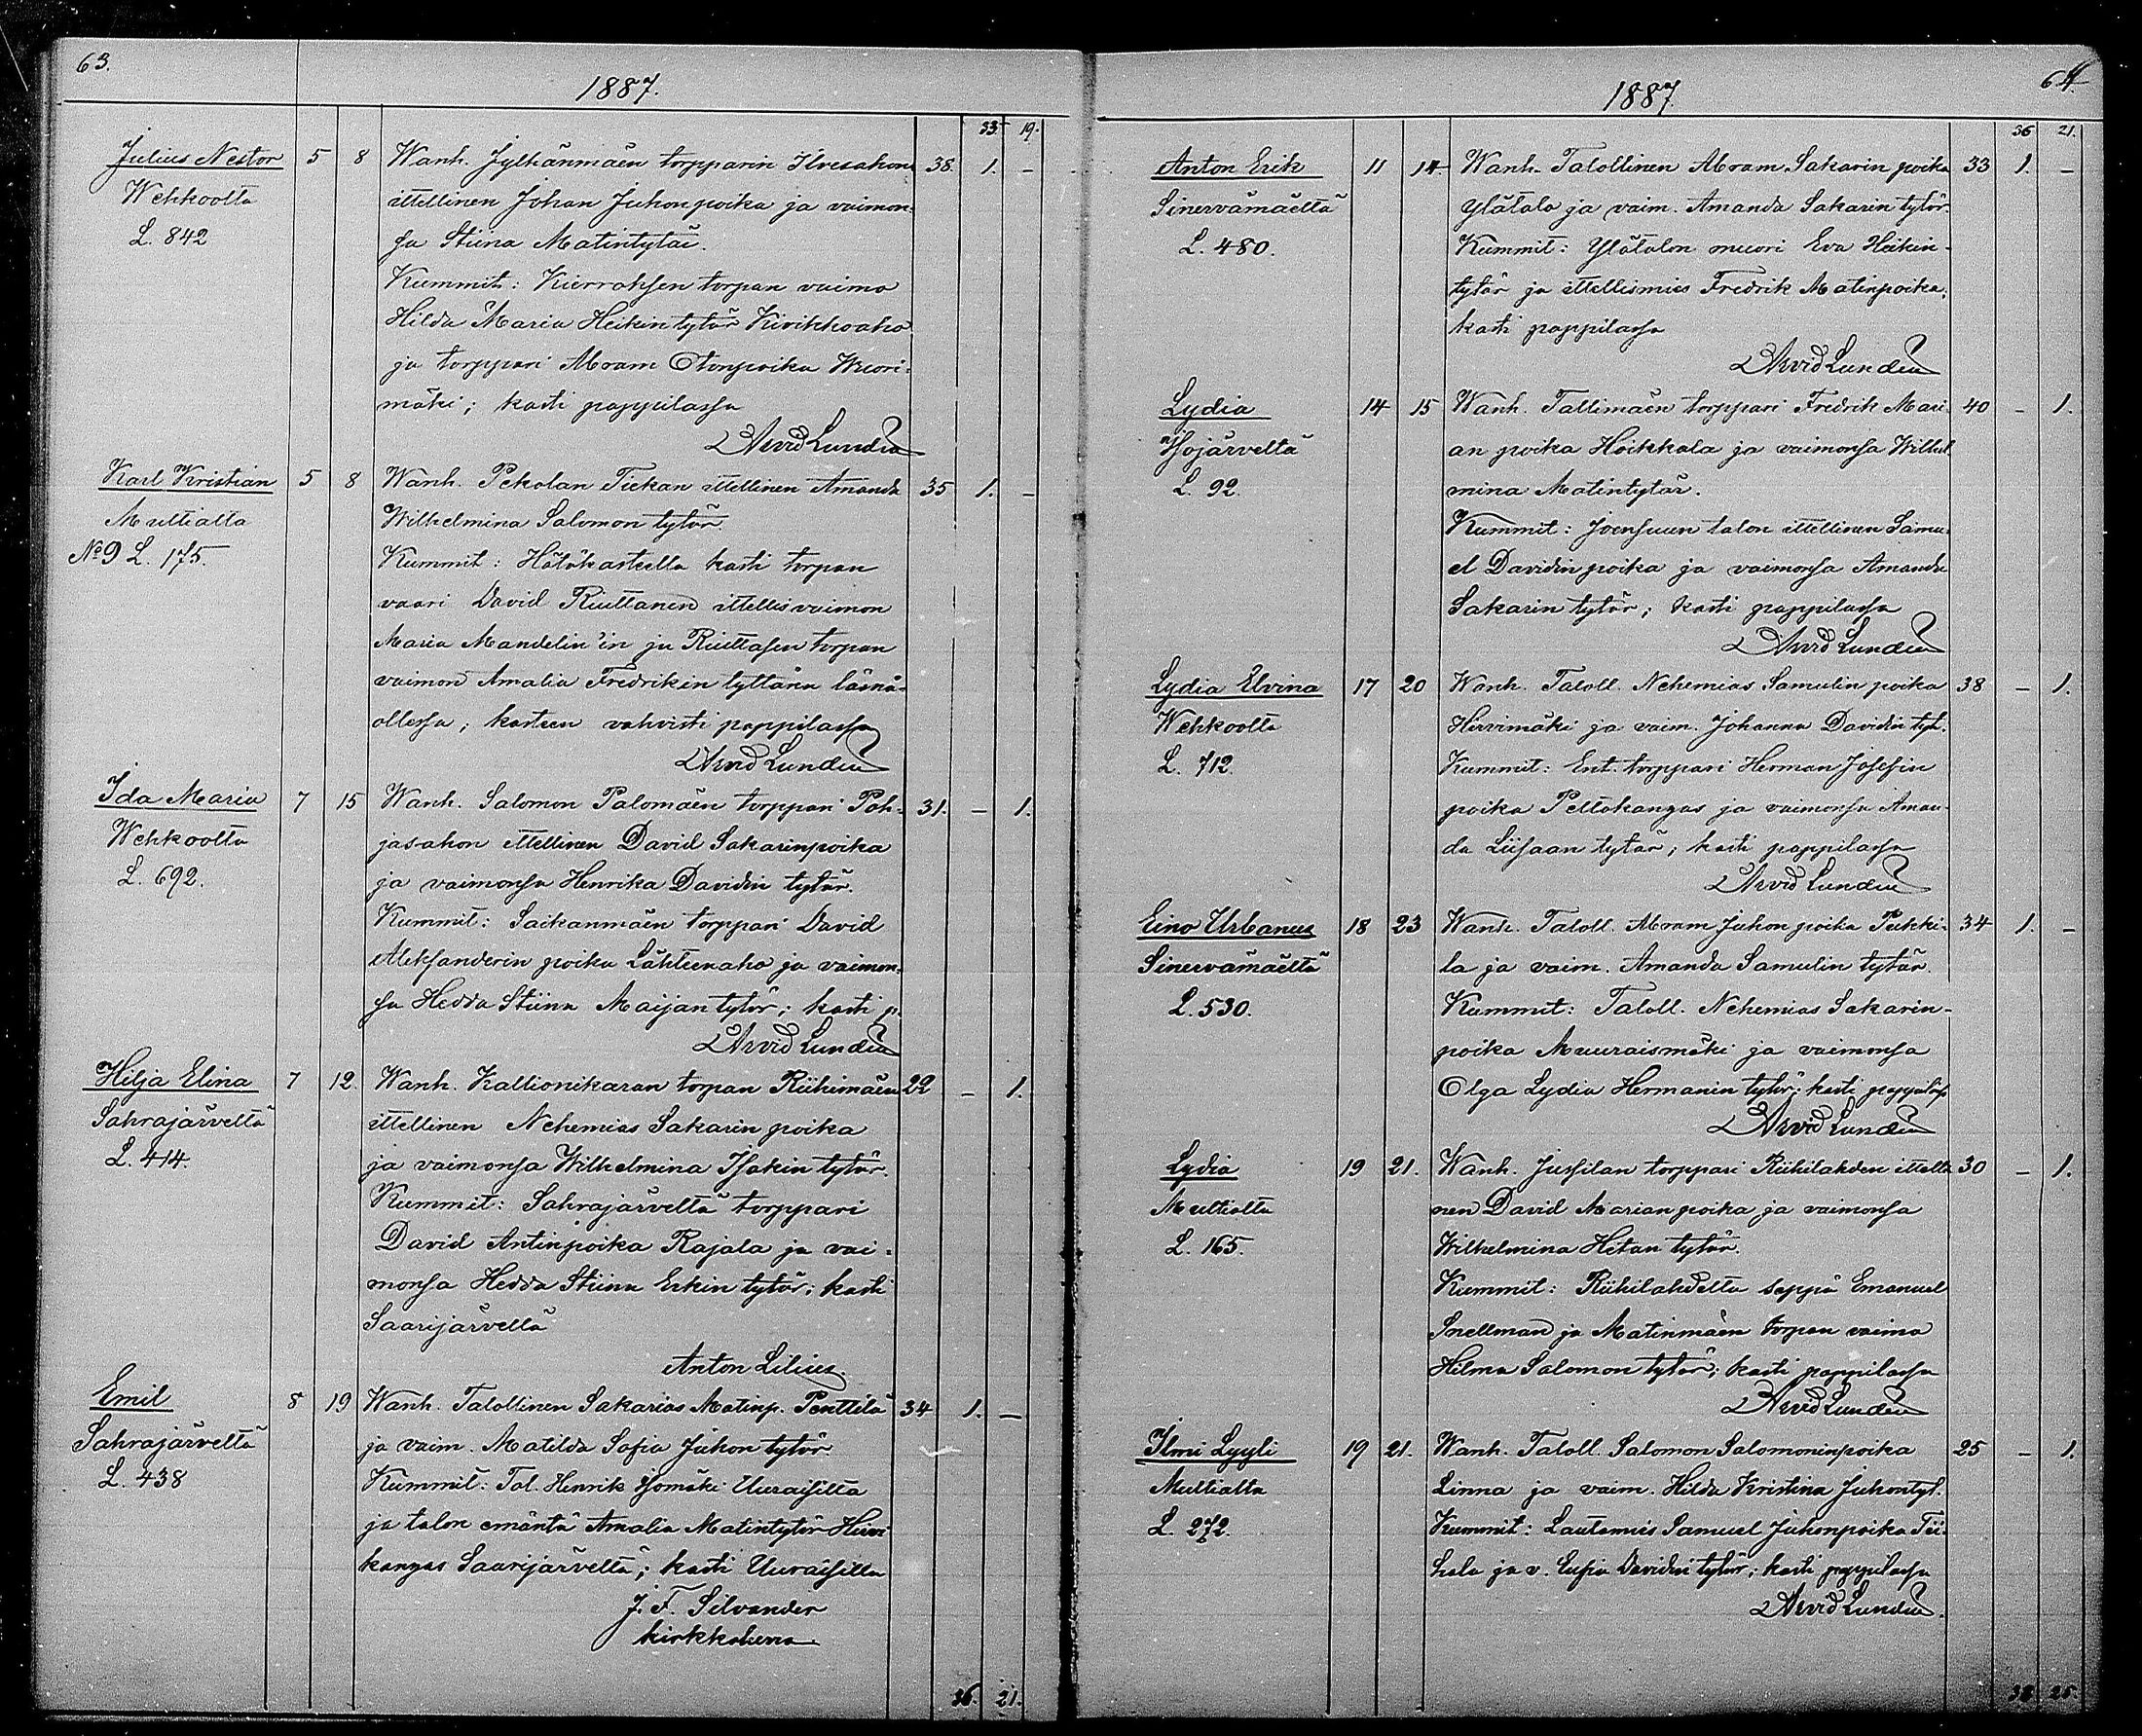 63.
1887.
33. 19.
Julius Nestor 5 8 Wanh. Jylhänmäen torpparin Ilvesahon 38. 1. –
Wehkoolta ittellinen Johan Juhonpoika ja vaimon-
L. 842 sa Stiina Matintytär.
Kummit: Kierroksen torpan vaimo
Hilda Maria Heikin tytär Kivikkoaho
ja torppari Abram Otonpoika Wuori-
mäki; kasti pappilassa
Arvid Lundén
Karl Kristian 5 8 Wanh. Pekolan Tiekan ittellinen Amanda 35 1. –
Multialta Wilhelmina Salomon tytär.
No 9 L. 175. Kummit: Hätäkasteella kasti torpan
vaari David Riuttanen ittellisvaimon
Maria Mandelin'in ja Riuttasen torpan
vaimon Amalia Fredrikin tyttären läsnä-
ollessa; kasteen vahvisti pappilassa
Arvid Lundén
Ida Maria 7 15 Wanh. Salomon Palomäen torppari Poh- 31. – 1.
Wehkoolta jasahon ittellinen David Sakarinpoika
L. 692. ja vaimonsa Henrika Davidin tytär.
Kummit: Saikanmäen torppari David
Aleksanderin poika Lähteenaho ja vaimon-
sa Hedda Stiina Maijan tytär; kasti p.
Arvid Lundén
Hilja Elina 7 12. Wanh. Kallionikaran torpan Riihimäen 22 – 1.
Sahrajärveltä ittellinen Nehemias Sakarin poika
L. 414. ja vaimonsa Wilhelmina Isakin tytär.
Kummit: Sahrajärveltä torppari
David Antinpoika Rajala ja vai-
monsa Hedda Stiina Erkin tytär; kasti
Saarijärvellä
Anton Lilius.
Emil 8 19 Wanh. Talollinen Sakarias Matinp. Penttilä 34 1. –
Sahrajärveltä ja vaim. Matilda Sofia Juhon tytär
L. 438 Kummit: Tal. Henrik Isomäki Uuraisilta
ja talon emäntä Amalia Matintytär
kangas Saarijärveltä; kasti Uuraisilla
J. F. Silvander
kirkkoherra.
36. 21.
64.
1887
36 21.
Anton Erik 11 14 Wanh. Talollinen Abram Sakarin poika 33 1. –
Sinervämäeltä Ylätalo ja vaim. Amanda Sakarin tytär.
L. 480. Kummit: Ylätalon muori Eva Heikin-
tytär ja ittellismies Fredrik Matinpoika,
kasti pappilassa
Arvid Lundén
Lydia 14 15 Wanh. Tallimäen torppari Fredrik Mari- 40 – 1.
Isojärveltä an poika Hoikkala ja vaimonsa Wilhel
L. 92. mina Matintytär.
Kummit: Joensuun talon ittellinen Samu-
el Davidin poika ja vaimonsa Amanda
Sakarin tytär; kasti pappilassa
Arvid Lundén
Lydia Elvina 17 20 Wanh. Taloll. Nehemias Samulin poika 38 – 1.
Wehkoolta Hirvimäki ja vaim. Johanna Davidin tyt.
L. 712. Kummit: Ent. torppari Herman Josefin
poika Peltokangas ja vaimonsa Aman-
da Liisaan tytär; kasti pappilassa
Arvid Lundén
Eino Urbanus 18 23 Wanh. Taloll. Abram Juhon poika Pukki- 34 1. –
Sinervämäeltä la ja vaim. Amanda Samulin tytär.
L. 530. Kummit: Taloll. Nehemias Sakarin-
poika Muuraismäki ja vaimonsa
Olga Lydia Hermanin tytär; kasti
Arvid Lundén
Lydia 19 21. Wanh. Jussilan torppari Riihilahden ittelli 30 – 1.
Multialta nen David Marian poika ja vaimonsa
L. 165. Wilhelmina Hetan tytär.
Kummit: Riihilahdelta seppä Emanuel
Snellman ja Matinmäen torpan vaimo
Hilma Salomon tytär; kasti pappilassa
Arvid Lundén
Ilmi Lyyli 19 21. Wanh. Taloll. Salomon Salomoninpoika 25 – 1.
Multialta Linna ja vaim. Hilda Kristina Juhontyt.
L. 272. Kummit: Lautamies Samuel Juhonpoika Tii-
hala ja v. Eufia Davidin tytär; kasti pappilassa
Arvid Lundén.
38 25.